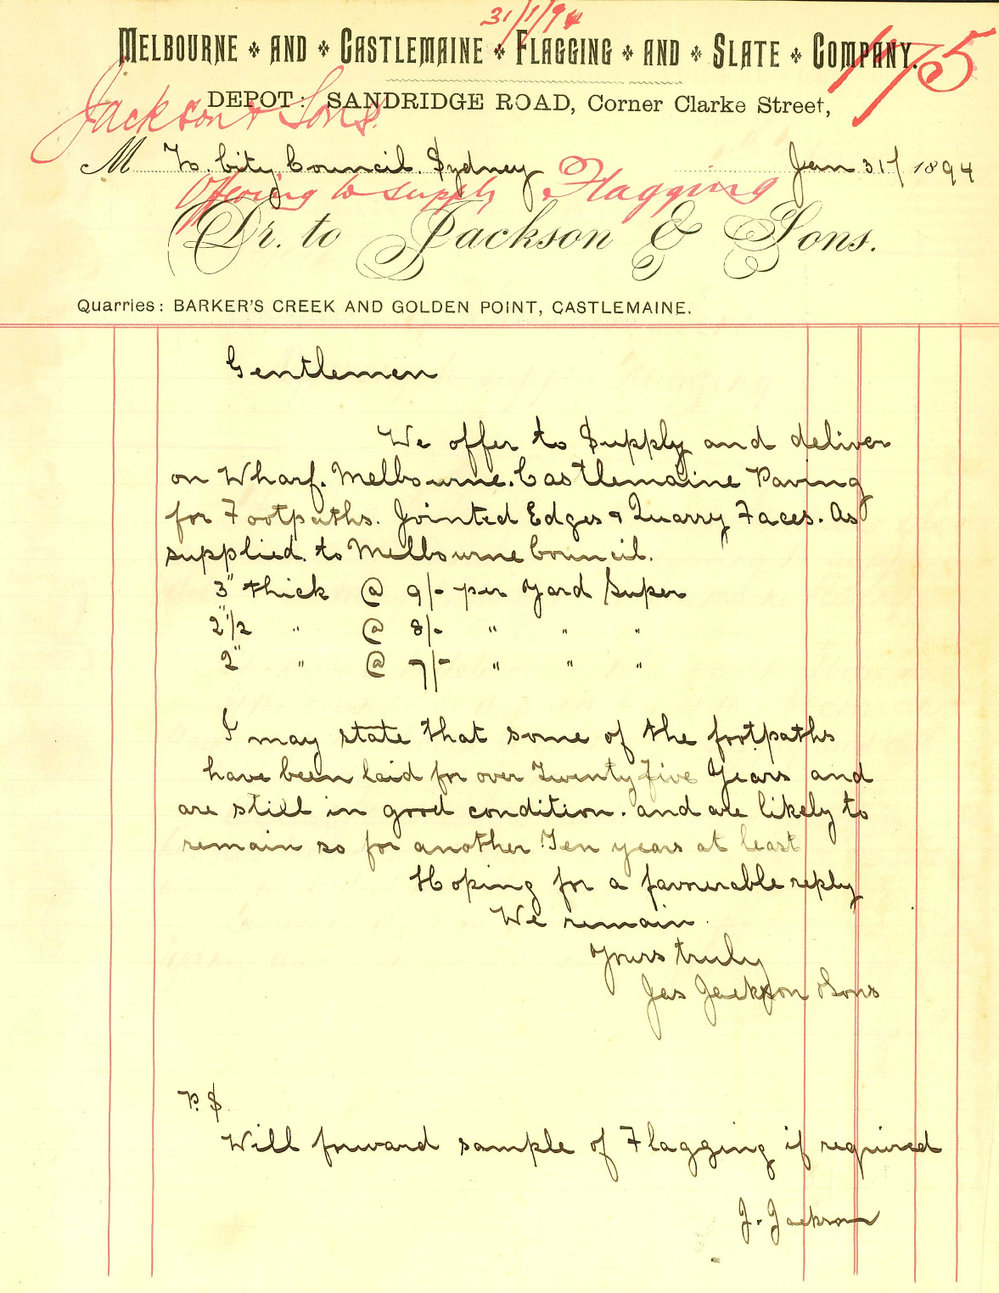 31/1/94
MELBOURNE AND CASTLEMAINE FLAGGING AND SLATE COMPANY.
175
DEPOT: SANDRIDGE ROAD, Corner Clarke Street,
Jackson & Sons
M To City Council. Sydney Jan 31st 1894
Offering to supply Flagging
Dr. to Jackson & Sons.
Quarries: BARKER'S CREEK AND GOLDEN POINT, CASTLEMAINE.
Gentlemen
We offer to Supply and deliver
on Wharf. Melbourne. Castlemaine Paving
for Footpaths. Jointed Edges & Quarry Faces. As
supplied. to Melbourne Council.
3" thick @ 9/- per Yard Super
2"1/2 " @ 8/- " " "
2" " @ 7/- " " "
I may state that some of the footpaths
have been laid for over Twenty five Years and
are still in good condition. and are likely to
remain so for another Ten years at least
Hoping for a favourable reply
We remain.
Yours truly
Jas Jackson & Sons
P.S
Will forward sample of Flagging if required
J. Jackson